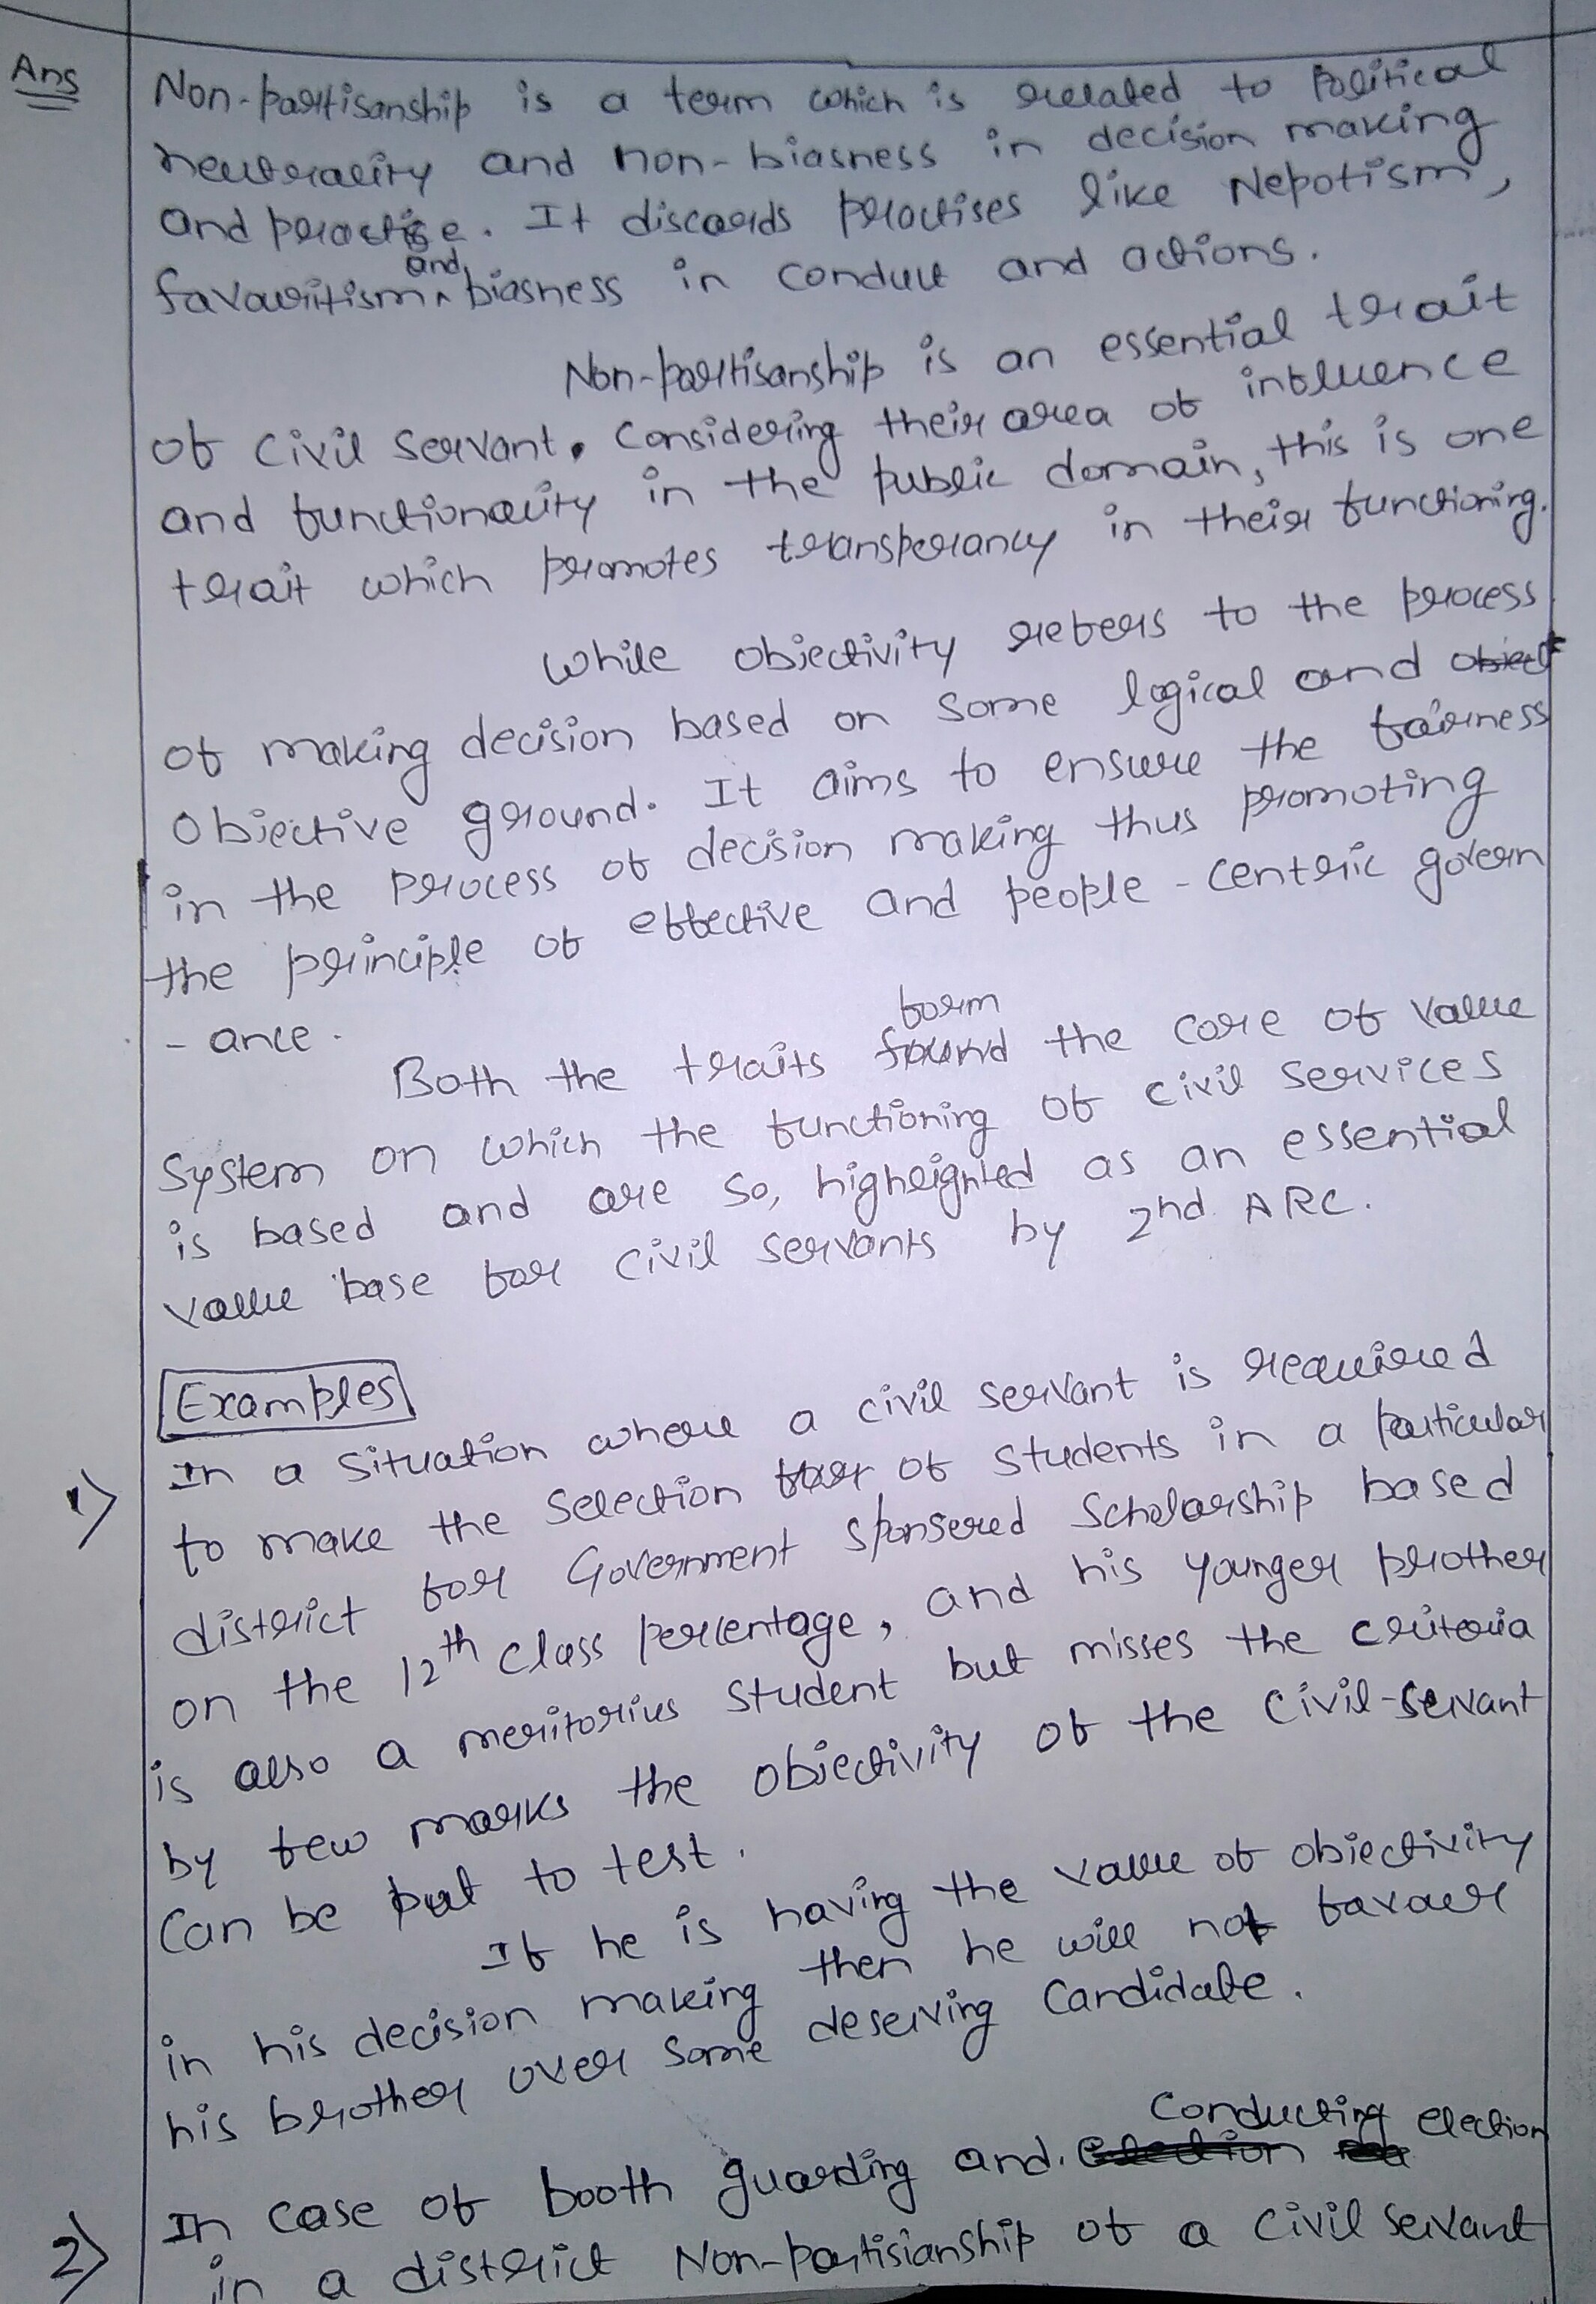 Ans
Non-partisanship is a term which is related to Political
neutrality and non-biasness in decision making
and practise. It discards practises like Nepotism,
favouritism and biasness in conduct and actions.
Non-partisanship is an essential trait
of civil servant. Considering their area of influence
and functionality in the public domain, this is one
trait which promotes transperancy in their functioning.
While objectivity refers to the process
of making decision based on some logical and object
Objective ground. It aims to ensure the fairness
in the process of decision making thus promoting
the principle of effective and people-centric govern
- ance.
Both the traits form the core of value
System on which the functioning of civil services
is based and are so, highlighted as an essential
value base for civil servants by 2nd ARC.
Examples
1) In a situation where a civil servant is required
to make the selection of students in a particular
district for Government sponsered Scholarship based
on the 12th class percentage, and his younger brother
is also a meritorius student but misses the criteria
by few marks the objectivity of the civil-servant
can be put to test.
If he is having the value of objectivity
in his decision making then he will not favour
his brother over some deserving candidate.
2) In case of booth guarding and conducting election
in a district Non-partisianship of a civil servant